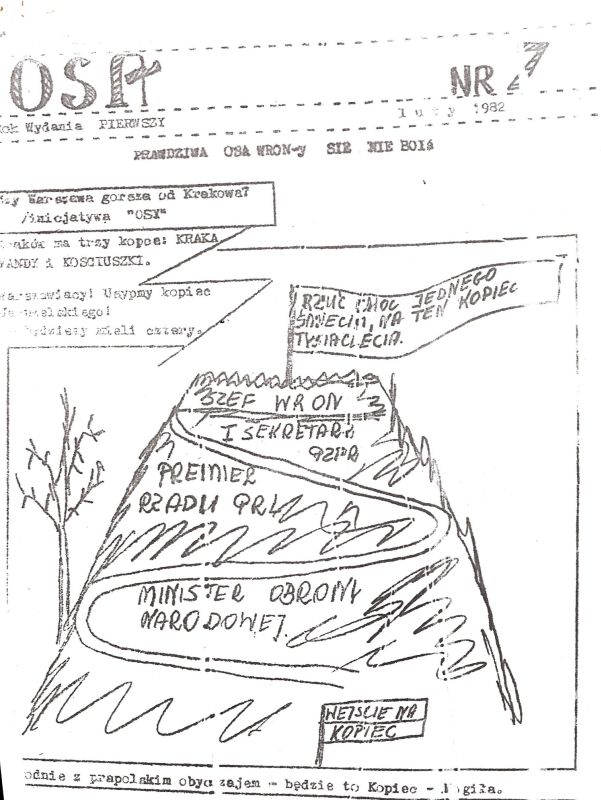 OSA
NR 7
ok Wydania PIERWSZY
luty 1982
PRAWDZIWA OSA WRON-y SIĘ NIE BOIś
zy Warszawa gorsza od Krakowa?
/inicjatywa "OSY"
raków ma trzy kopce: KRAKA
WANDY i KOSCIUSZKI.
arszawiacy! Usypmy kopiec
Jaruzelskiego!
będziemy mieli cztery.
RZUĆ CHOĆ JEDNEGO
NA TEN KOPIEC
TYSIĄCLECIA.
SZEF WRON
I SEKRETARZ
PZPR
PREMIER
RZĄDU PRL
MINISTER OBRONY
NARODOWEJ.
WEJSCIE NA
KOPIEC
odnie z prapolskim obyczajem - będzie to Kopiec - Mogiła.